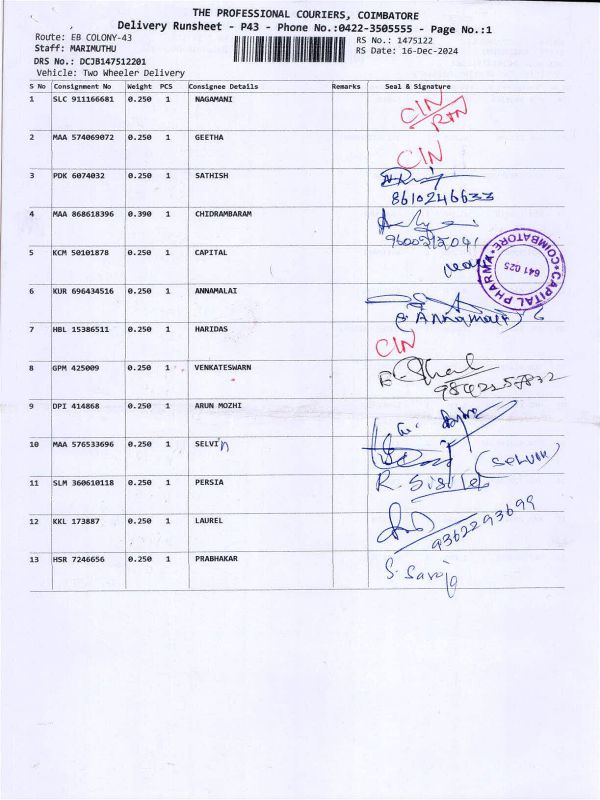 THE PROFESSIONAL COURIERS, COIMBATORE
Delivery Runsheet - P43 - Phone No.:0422-3505555 - Page No.:1
Route: EB COLONY-43 RS No.: 1475122
Staff: MARIMUTHU RS Date: 16-Dec-2024
DRS No.: DCJB147512201
Vehicle: Two Wheeler Delivery
S No Consignment No Weight PCS Consignee Details Remarks Seal & Signature
1 SLC 911166681 0.250 1 NAGAMANI CIN
RTN
2 MAA 574069072 0.250 1 GEETHA CIN
3 PDK 6074032 0.250 1 SATHISH
8610246633
4 MAA 868618396 0.390 1 CHIDRAMBARAM
5 KCM 50101878 0.250 1 CAPITAL CAPITAL PHARMA COIMBATORE 641 025
6 KUR 696434516 0.250 1 ANNAMALAI
7 HBL 15386511 0.250 1 HARIDAS CIN
8 GPM 425009 0.250 1 VENKATESWARN
9 DPI 414868 0.250 1 ARUN MOZHI
10 MAA 576533696 0.250 1 SELVIn (SELVIN)
11 SLM 360610118 0.250 1 PERSIA
12 KKL 173887 0.250 1 LAUREL
9362293699
13 HSR 7246656 0.250 1 PRABHAKAR S. Saroja